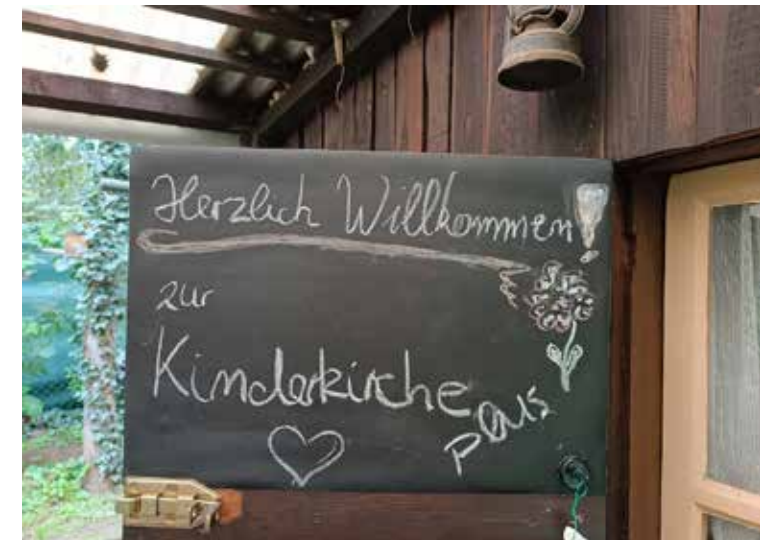 Herzlich Willkommen!
zur
Kinderkirche
plus